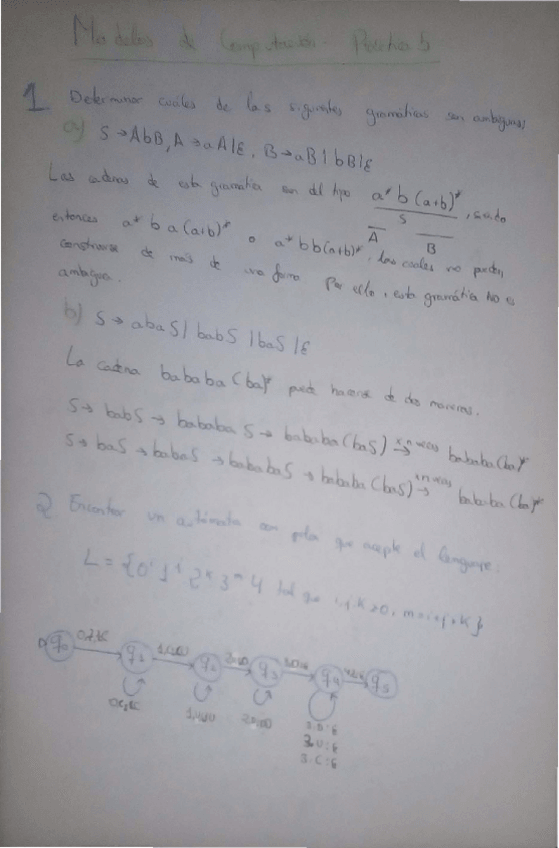 Modelos de Computación - Práctica 5
1 Determinar cuáles de las siguientes gramáticas son ambiguas
a) S → AbB, A → aA|ε, B → aB|bB|ε
Las cadenas de esta gramática son del tipo a*b(a+b)*, siendo
S
A B
entonces a*ba(a+b)* o a*bb(a+b)*, las cuales no pueden
construirse de más de una forma. Por ello, esta gramática no es
ambigua.
b) S → abaS| babS |baS|ε
La cadena bababa(ba)* puede hacerse de dos maneras.
S → babS → bababa S → bababa(baS) → bababa(ba)*
S → baS → babaS → bababaS → bababa(baS) → bababa(ba)*
2 Encontrar un autómata con pila que acepte el lenguaje.
L = {0 1 2 3 4 tal que i, j, k > 0, m = i+j+k}
q0 q1 q2 q3 q4 q5